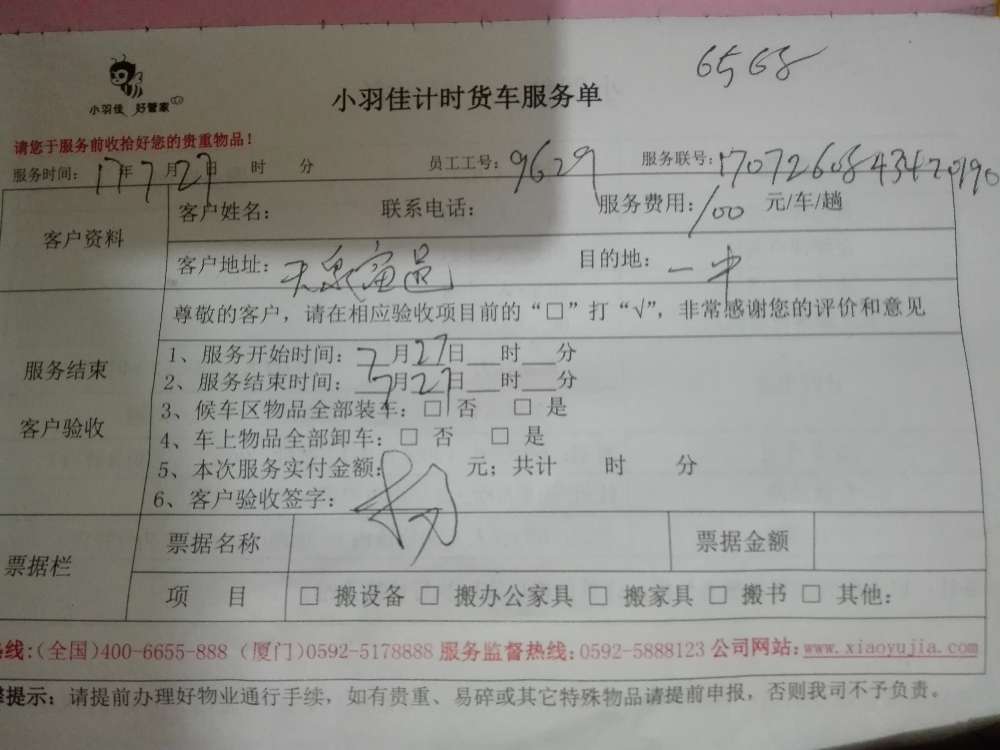 6568
小羽佳 好管家
小羽佳计时货车服务单
请您于服务前收拾好您的贵重物品！
服务时间：17年7月27日 时 分 员工工号：9629 服务联号：1707260843470190
客户资料 客户姓名： 联系电话： 服务费用：100 元/车/趟
客户地址：天泉 目的地：一中
尊敬的客户，请在相应验收项目前的“□”打“√”，非常感谢您的评价和意见
服务结束
客户验收
1、服务开始时间：7月27日___时___分
2、服务结束时间：7月27日___时___分
3、候车区物品全部装车：□ 否 □ 是
4、车上物品全部卸车：□ 否 □ 是
5、本次服务实付金额： 元；共计 时 分
6、客户验收签字：
票据栏 票据名称 票据金额
项 目 □ 搬设备 □ 搬办公家具 □ 搬家具 □ 搬书 □ 其他：
线：(全国)400-6655-888 (厦门)0592-5178888 服务监督热线：0592-5888123 公司网站：www.xiaoyujia.com
提示：请提前办理好物业通行手续，如有贵重、易碎或其它特殊物品请提前申报，否则我司不予负责。